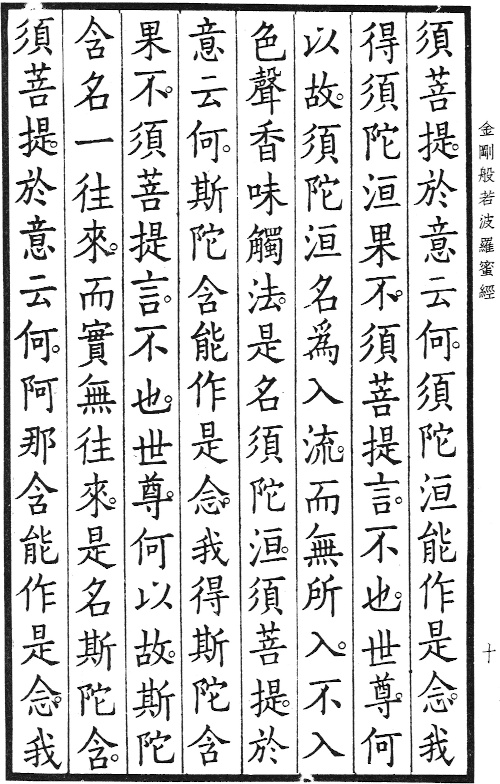 金剛般若波羅蜜經
十
須菩提。於意云何。須陀洹能作是念。我
得須陀洹果不。須菩提言。不也。世尊。何
以故。須陀洹名為入流。而無所入。不入
色聲香味觸法。是名須陀洹。須菩提。於
意云何。斯陀含能作是念。我得斯陀含
果不。須菩提言。不也。世尊。何以故。斯陀
含名一往來。而實無往來。是名斯陀含。
須菩提。於意云何。阿那含能作是念。我